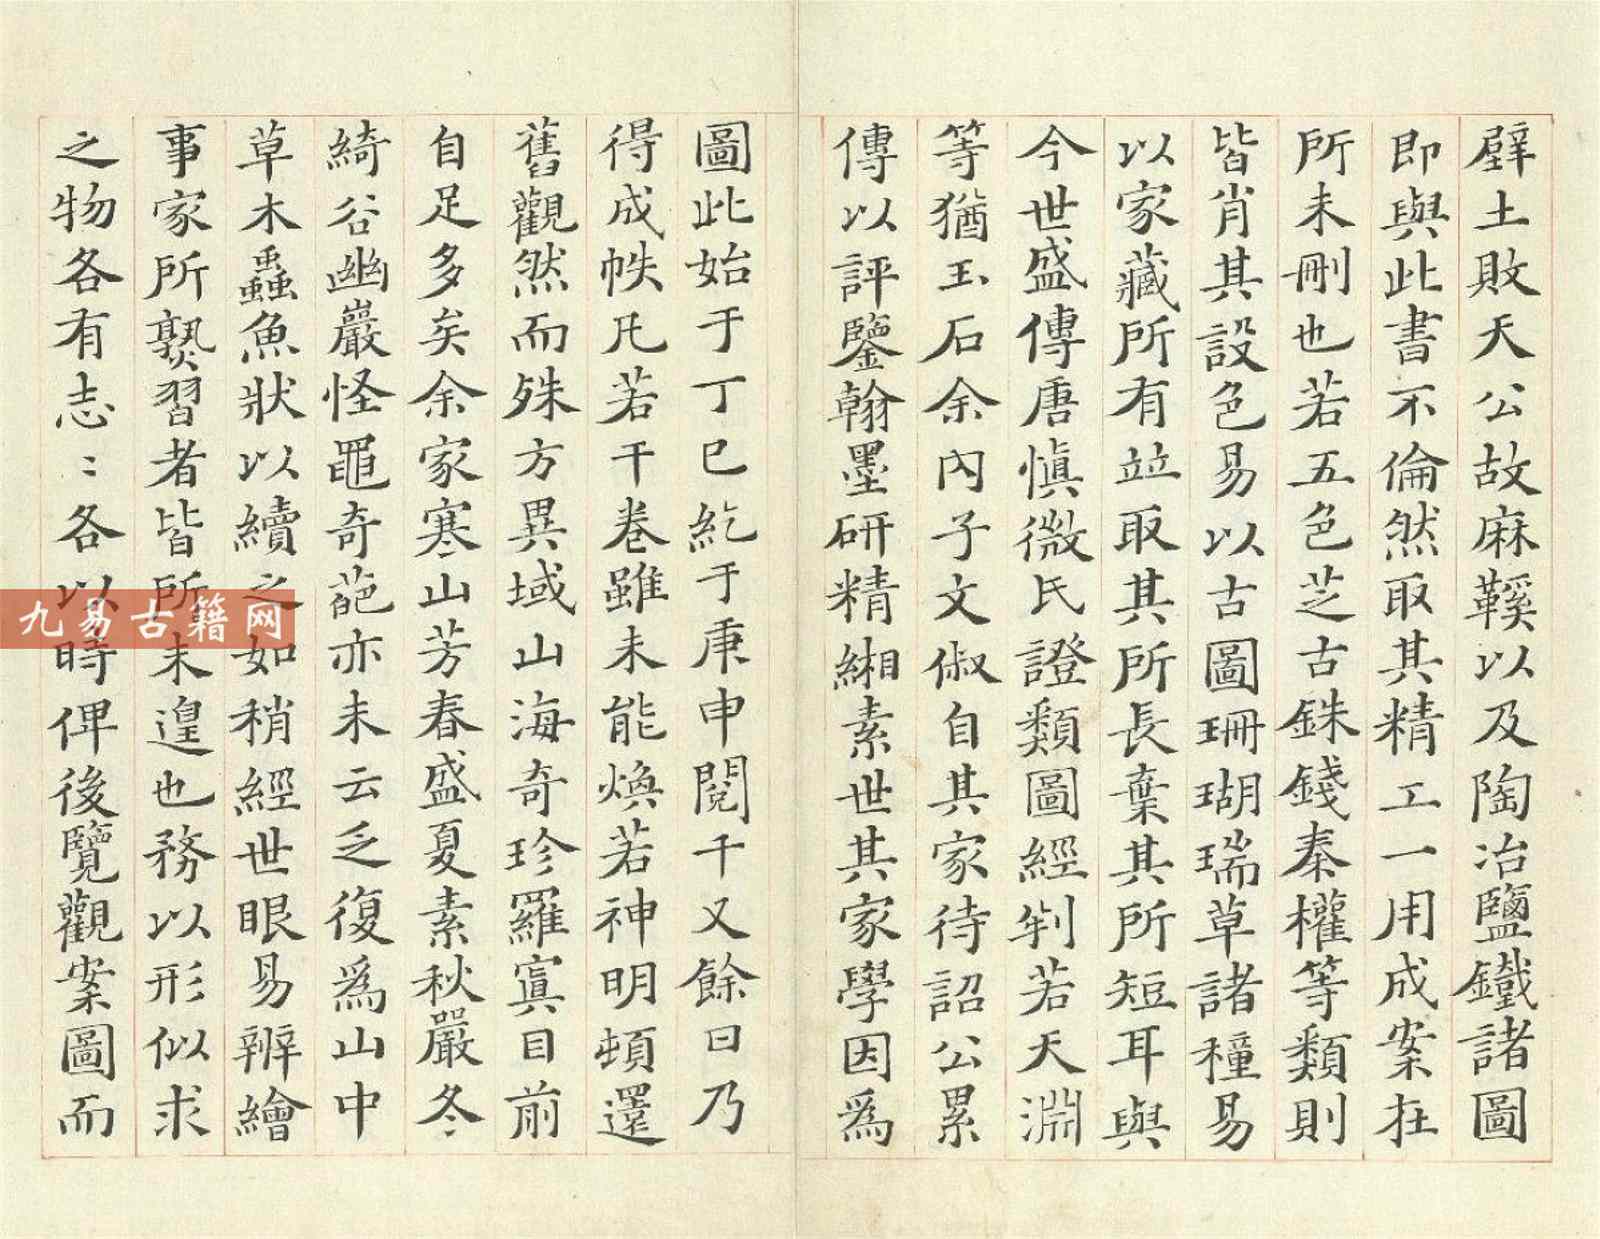 壁土敗天公故麻鞵以及陶冶鹽鐵諸圖
即與此書不倫然取其精工一用成案在
所未刪也若五色芝古銖錢秦權等類則
皆肖其設色易以古圖珊瑚瑞草諸種易
以家藏所有竝取其所長棄其所短耳與
今世盛傳唐慎微氏證類圖經判若天淵
等猶玉石余內子文俶自其家待詔公累
傳以評鑒翰墨研精緗素世其家學因爲
圖此始于丁巳紇于庚申閱千又餘日乃
得成帙凡若干卷雖未能煥若神明頓還
舊觀然而殊方異域山海奇珍羅寘目前
自足多矣余家寒山芳春盛夏素秋嚴冬
綺谷幽巖怪黽奇葩亦未云乏復爲山中
草木蟲魚狀以續之如稍經世眼易辨繪
事家所褻習者皆所未遑也務以形似求
之物各有志〻各以時俾後覽觀案圖而
九易古籍网